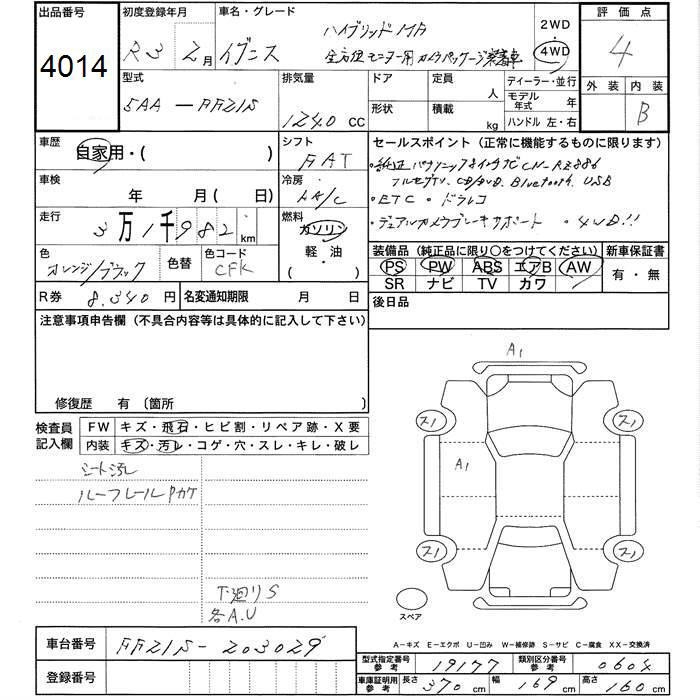 出品番号
4014
初度登録年月
R3 2月
車名・グレード
イグニス
ハイブリッドMF
全方位モニター用カメラパッケージ装着車
2WD
・
4WD
評価点
4
外装 内装
B
型式
5AA-FF21S
排気量
1240 CC
ドア
定員
人
形状
積載
kg
ディーラー・並行
モデル年式 年
ハンドル 左・右
車歴
自家用・( )
シフト
FAT
車検
年 月( 日)
冷房
AA/C
走行
3万1千982 km
燃料
ガソリン
軽・油
・( )
色
オレンジ/ブラック
色替
色コード
CFK
R券 8,340円
名変通知期限 月 日
セールスポイント(正常に機能するものに限ります)
・純正パナソニック8インチナビCN-RZ886
フルセグTV、CD/DVD、Bluetooth、USB
・ETC ・ドラレコ
・デュアルカメラブレーキサポート ・4WD!!
装備品(純正品に限り〇をつけてください)
新車保証書
PS PW ABS エアB AW
SR ナビ TV カワ
有・無
後日品
注意事項申告欄(不具合内容等は具体的に記入して下さい)
修復歴 有 〔箇所 〕
検査員記入欄
FW キズ・飛石・ヒビ割・リペア跡・X要
内装 キズ・汚レ・コゲ・穴・スレ・キレ・破レ
シート汚レ
ルーフレールPカケ
下廻りS
各A.U
A1
A1
ス1
ス1
ス1
ス1
スペア
A-キズ E-エクボ U-凹み W-補修跡 S-サビ C-腐食 XX-交換済
車台番号 FF21S-203029
登録番号
型式指定番号参考 19177
類別区分番号参考 0604
車庫証明用参考 長さ 370cm 幅 169cm 高さ 160cm